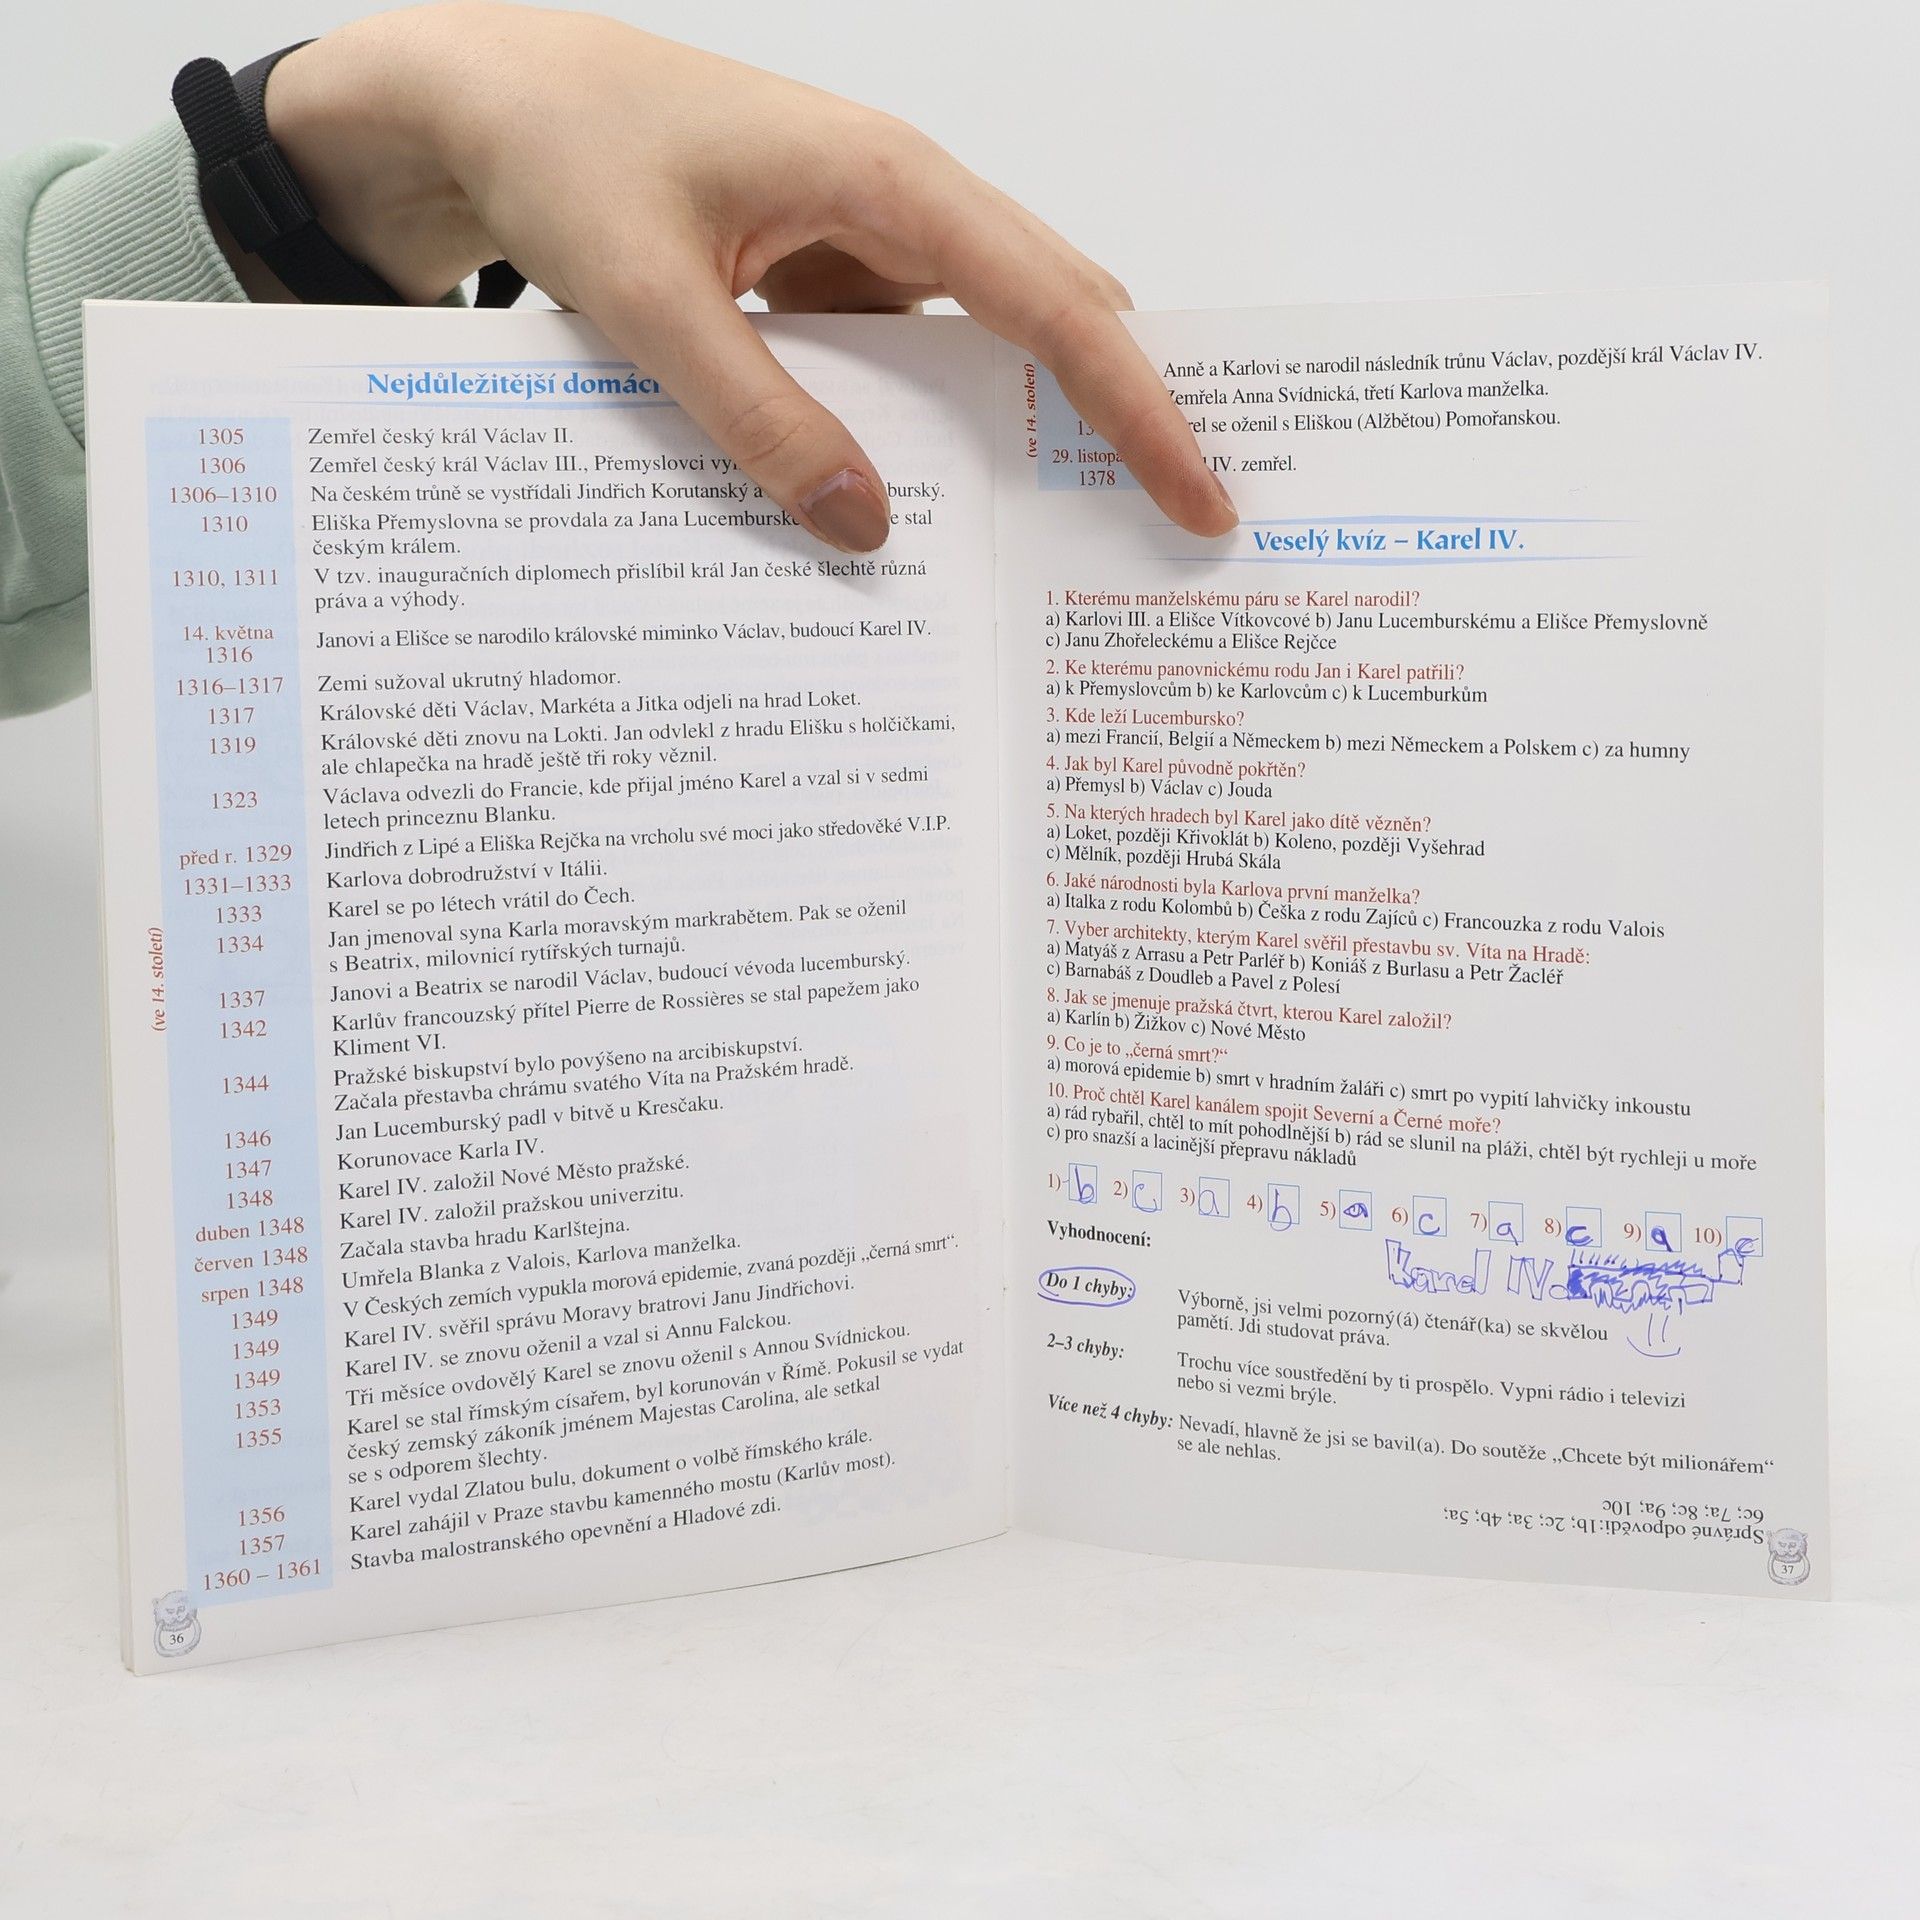 Nejdůležitější domácí
(ve 14. století)
1305 Zemřel český král Václav II.
1306 Zemřel český král Václav III., Přemyslovci
1306–1310 Na českém trůně se vystřídali Jindřich Korutanský a burský.
1310 Eliška Přemyslovna se provdala za Jana Lucemburské e stal
českým králem.
1310, 1311 V tzv. inauguračních diplomech přislíbil král Jan české šlechtě různá
práva a výhody.
14. května
1316 Janovi a Elišce se narodilo královské miminko Václav, budoucí Karel IV.
1316–1317 Zemi sužoval ukrutný hladomor.
1317 Královské děti Václav, Markéta a Jitka odjeli na hrad Loket.
1319 Královské děti znovu na Lokti. Jan odvlekl z hradu Elišku s holčičkami,
ale chlapečka na hradě ještě tři roky věznil.
1323 Václava odvezli do Francie, kde přijal jméno Karel a vzal si v sedmi
letech princeznu Blanku.
před r. 1329 Jindřich z Lipé a Eliška Rejčka na vrcholu své moci jako středověké V.I.P.
1331–1333 Karlova dobrodružství v Itálii.
1333 Karel se po létech vrátil do Čech.
1334 Jan jmenoval syna Karla moravským markrabětem. Pak se oženil
s Beatrix, milovnicí rytířských turnajů.
1337 Janovi a Beatrix se narodil Václav, budoucí vévoda lucemburský.
1342 Karlův francouzský přítel Pierre de Rossières se stal papežem jako
Kliment VI.
1344 Pražské biskupství bylo povýšeno na arcibiskupství.
Začala přestavba chrámu svatého Víta na Pražském hradě.
1346 Jan Lucemburský padl v bitvě u Kresčaku.
1347 Korunovace Karla IV.
1348 Karel IV. založil Nové Město pražské.
duben 1348 Karel IV. založil pražskou univerzitu.
červen 1348 Začala stavba hradu Karlštejna.
srpen 1348 Umřela Blanka z Valois, Karlova manželka.
1349 V Českých zemích vypukla morová epidemie, zvaná později „černá smrt“.
1349 Karel IV. svěřil správu Moravy bratrovi Janu Jindřichovi.
1349 Karel IV. se znovu oženil a vzal si Annu Falckou.
1353 Tři měsíce ovdovělý Karel se znovu oženil s Annou Svídnickou.
1355 Karel se stal římským císařem, byl korunován v Římě. Pokusil se vydat
český zemský zákoník jménem Majestas Carolina, ale setkal
se s odporem šlechty.
1356 Karel vydal Zlatou bulu, dokument o volbě římského krále.
1357 Karel zahájil v Praze stavbu kamenného mostu (Karlův most).
1360 – 1361 Stavba malostranského opevnění a Hladové zdi.
36
(ve 14. století)
Anně a Karlovi se narodil následník trůnu Václav, pozdější král Václav IV.
Zemřela Anna Svídnická, třetí Karlova manželka.
13 rel se oženil s Eliškou (Alžbětou) Pomořanskou.
29. listopa
1378 IV. zemřel.
Veselý kvíz – Karel IV.
1. Kterému manželskému páru se Karel narodil?
a) Karlovi III. a Elišce Vítkovcové b) Janu Lucemburskému a Elišce Přemyslovně
c) Janu Zhořeleckému a Elišce Rejčce
2. Ke kterému panovnickému rodu Jan i Karel patřili?
a) k Přemyslovcům b) ke Karlovcům c) k Lucemburkům
3. Kde leží Lucembursko?
a) mezi Francií, Belgií a Německem b) mezi Německem a Polskem c) za humny
4. Jak byl Karel původně pokřtěn?
a) Přemysl b) Václav c) Jouda
5. Na kterých hradech byl Karel jako dítě vězněn?
a) Loket, později Křivoklát b) Koleno, později Vyšehrad
c) Mělník, později Hrubá Skála
6. Jaké národnosti byla Karlova první manželka?
a) Italka z rodu Kolombů b) Češka z rodu Zajíců c) Francouzka z rodu Valois
7. Vyber architekty, kterým Karel svěřil přestavbu sv. Víta na Hradě:
a) Matyáš z Arrasu a Petr Parléř b) Koniáš z Burlasu a Petr Žacléř
c) Barnabáš z Doudleb a Pavel z Polesí
8. Jak se jmenuje pražská čtvrt, kterou Karel založil?
a) Karlín b) Žižkov c) Nové Město
9. Co je to „černá smrt?“
a) morová epidemie b) smrt v hradním žaláři c) smrt po vypití lahvičky inkoustu
10. Proč chtěl Karel kanálem spojit Severní a Černé moře?
a) rád rybařil, chtěl to mít pohodlnější b) rád se slunil na pláži, chtěl být rychleji u moře
c) pro snazší a lacinější přepravu nákladů
1) b 2) c 3) a 4) b 5) a 6) c 7) a 8) c 9) a 10) c
Karel IV.
Vyhodnocení:
Do 1 chyby: Výborně, jsi velmi pozorný(á) čtenář(ka) se skvělou
pamětí. Jdi studovat práva.
2–3 chyby: Trochu více soustředění by ti prospělo. Vypni rádio i televizi
nebo si vezmi brýle.
Více než 4 chyby: Nevadí, hlavně že jsi se bavil(a). Do soutěže „Chcete být milionářem“
se ale nehlas.
Správné odpovědi: 1b; 2c; 3a; 4b; 5a;
6c; 7a; 8c; 9a; 10c
37